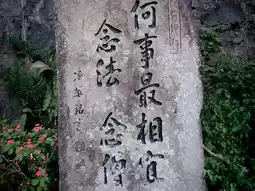 何事最相宜
念法 念僧